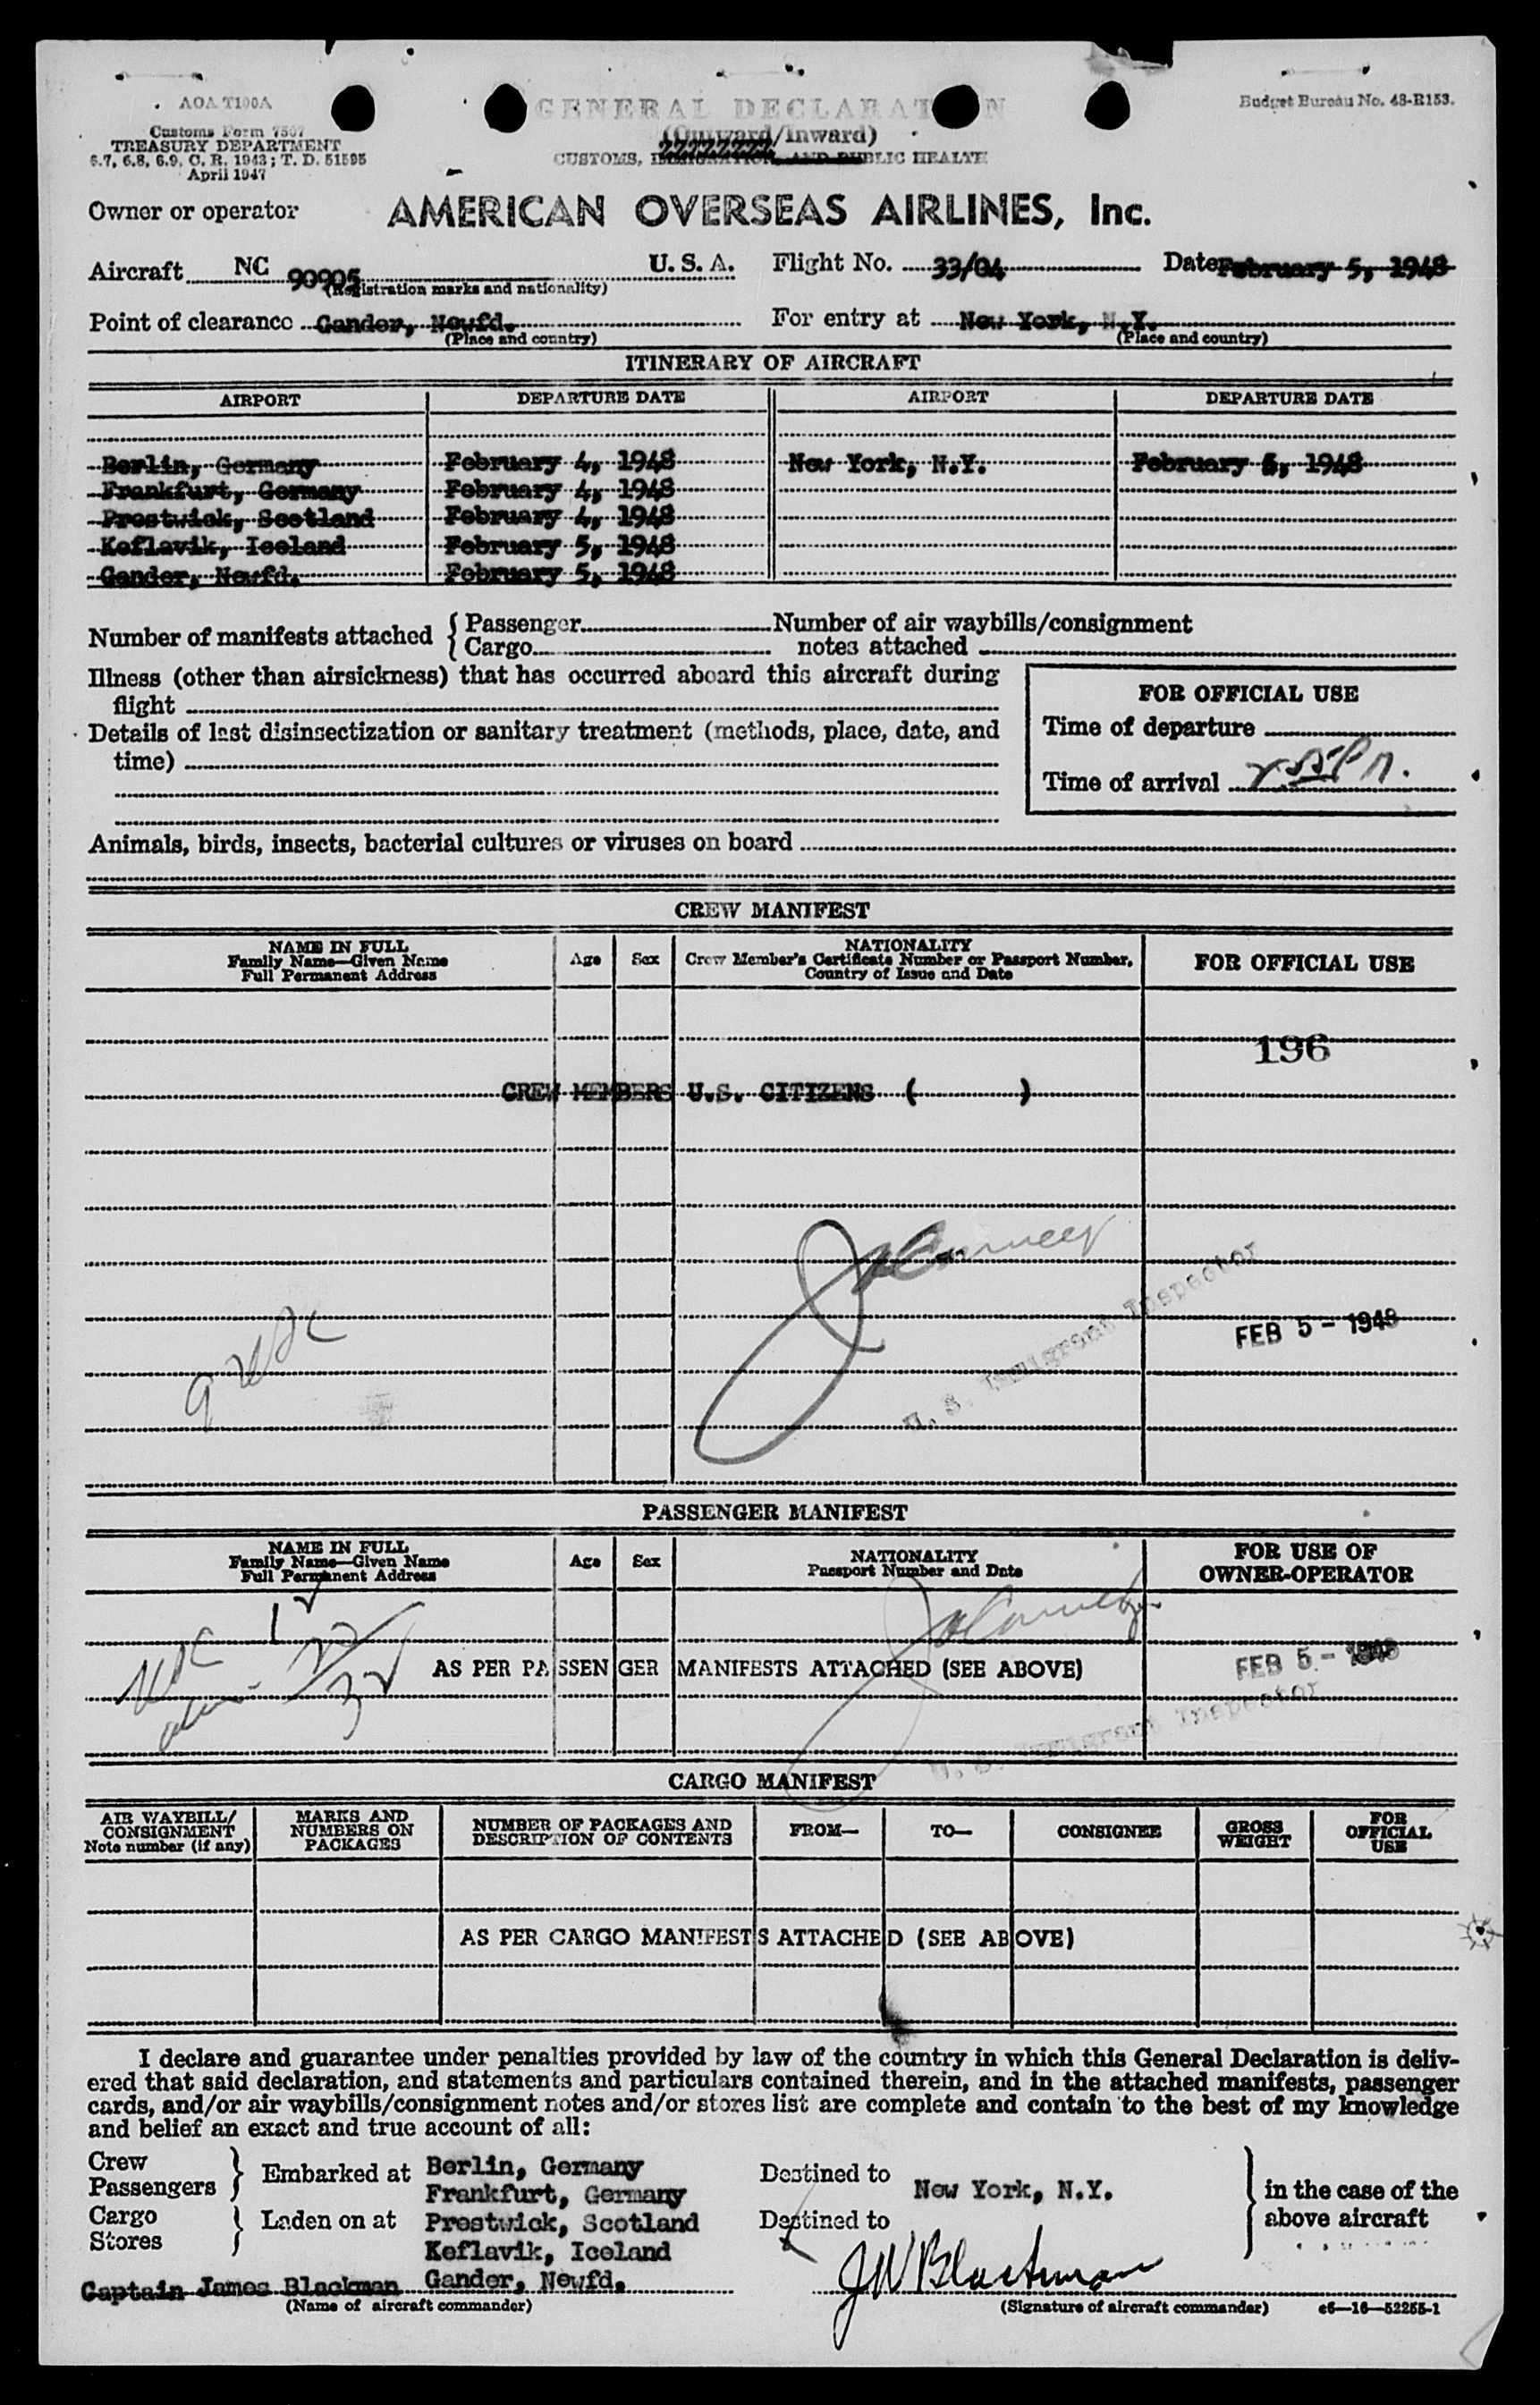 AOA T100A
Customs Form 7507
TREASURY DEPARTMENT
6.7, 6.8, 6.9, C. R. 1943; T. D. 51595
April 1947
GENERAL DECLARATION
(Outward/Inward)
CUSTOMS, IMMIGRATION, AND PUBLIC HEALTH
Budget Bureau No. 48-R153.
Owner or operator AMERICAN OVERSEAS AIRLINES, Inc.
Aircraft NC 90905 U. S. A. Flight No. 33/04 Date February 5, 1948
(Registration marks and nationality)
Point of clearance Gander, Newfd. For entry at New York, N.Y.
(Place and country) (Place and country)
ITINERARY OF AIRCRAFT
AIRPORT DEPARTURE DATE AIRPORT DEPARTURE DATE
Berlin, Germany February 4, 1948 New York, N.Y. February 5, 1948
Frankfurt, Germany February 4, 1948
Prestwick, Scotland February 4, 1948
Keflavik, Iceland February 5, 1948
Gander, Newfd. February 5, 1948
Number of manifests attached { Passenger Number of air waybills/consignment
Cargo notes attached
Illness (other than airsickness) that has occurred aboard this aircraft during
flight
Details of last disinsectization or sanitary treatment (methods, place, date, and
time)
FOR OFFICIAL USE
Time of departure
Time of arrival
Animals, birds, insects, bacterial cultures or viruses on board
CREW MANIFEST
NAME IN FULL
Family Name—Given Name
Full Permanent Address
Age Sex
NATIONALITY
Crew Member's Certificate Number or Passport Number,
Country of Issue and Date
FOR OFFICIAL USE
196
CREW MEMBERS U.S. CITIZENS ( )
U. S. Immigrant Inspector
FEB 5 - 1948
9 USC
PASSENGER MANIFEST
NAME IN FULL
Family Name—Given Name
Full Permanent Address
Age Sex
NATIONALITY
Passport Number and Date
FOR USE OF
OWNER-OPERATOR
AS PER PASSENGER MANIFESTS ATTACHED (SEE ABOVE)
FEB 5 - 1948
U. S. Immigrant Inspector
CARGO MANIFEST
AIR WAYBILL/
CONSIGNMENT
Note number (if any)
MARKS AND
NUMBERS ON
PACKAGES
NUMBER OF PACKAGES AND
DESCRIPTION OF CONTENTS
FROM— TO— CONSIGNEE
GROSS
WEIGHT
FOR
OFFICIAL
USE
AS PER CARGO MANIFESTS ATTACHED (SEE ABOVE)
I declare and guarantee under penalties provided by law of the country in which this General Declaration is deliv-
ered that said declaration, and statements and particulars contained therein, and in the attached manifests, passenger
cards, and/or air waybills/consignment notes and/or stores list are complete and contain to the best of my knowledge
and belief an exact and true account of all:
Crew
Passengers } Embarked at Berlin, Germany Destined to
Frankfurt, Germany New York, N.Y. in the case of the
Cargo
Stores } Laden on at Prestwick, Scotland Destined to above aircraft
Keflavik, Iceland
Captain James Blackman Gander, Newfd. JW Blackman
(Name of aircraft commander) (Signature of aircraft commander) c6—16—52255-1